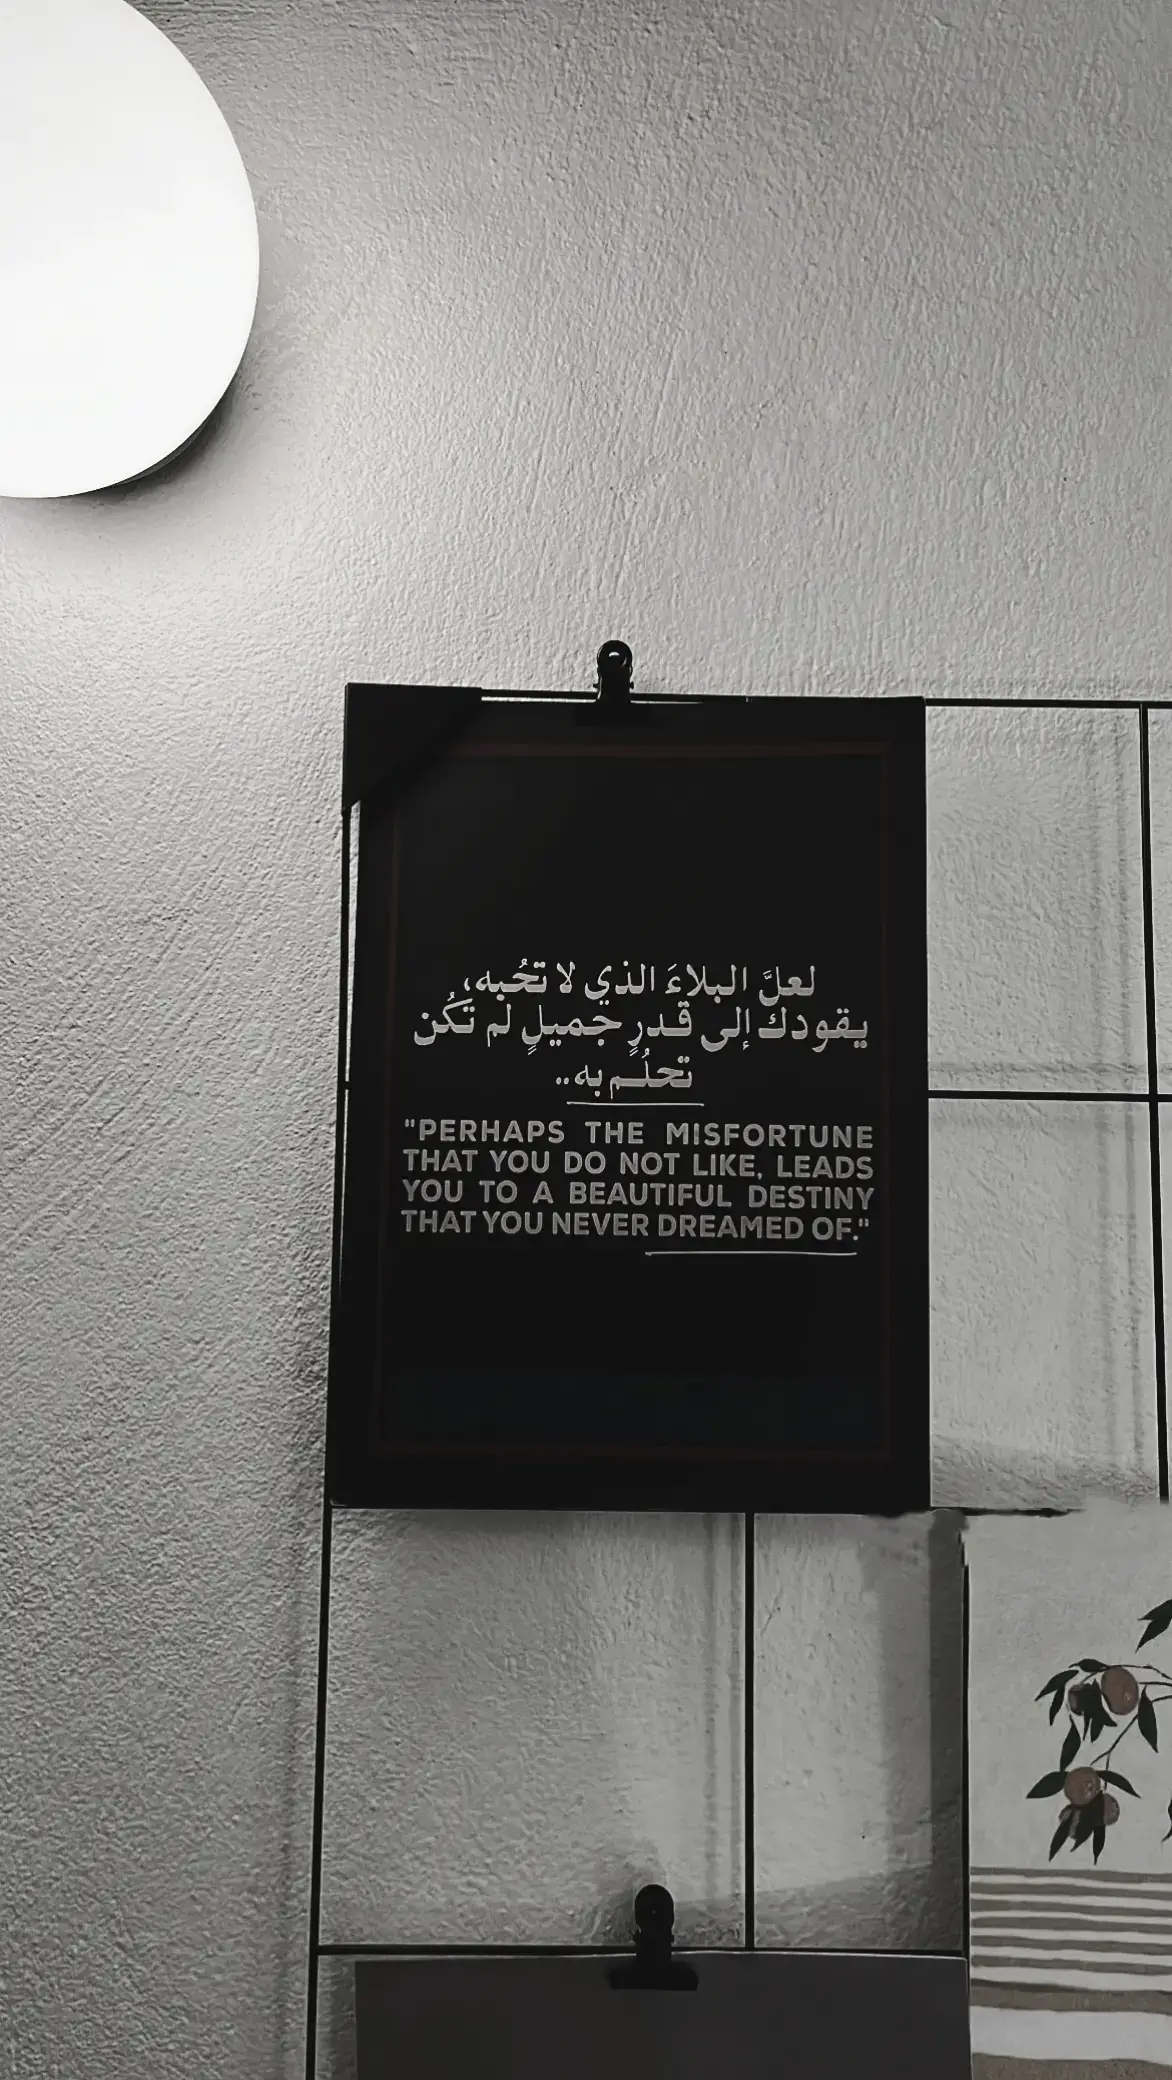 لعلَّ البلاءَ الذي لا تحُبه،
يقودك إلى قدرٍ جميلٍ لم تَكُن
تحلُـم به..
"PERHAPS THE MISFORTUNE
THAT YOU DO NOT LIKE, LEADS
YOU TO A BEAUTIFUL DESTINY
THAT YOU NEVER DREAMED OF."